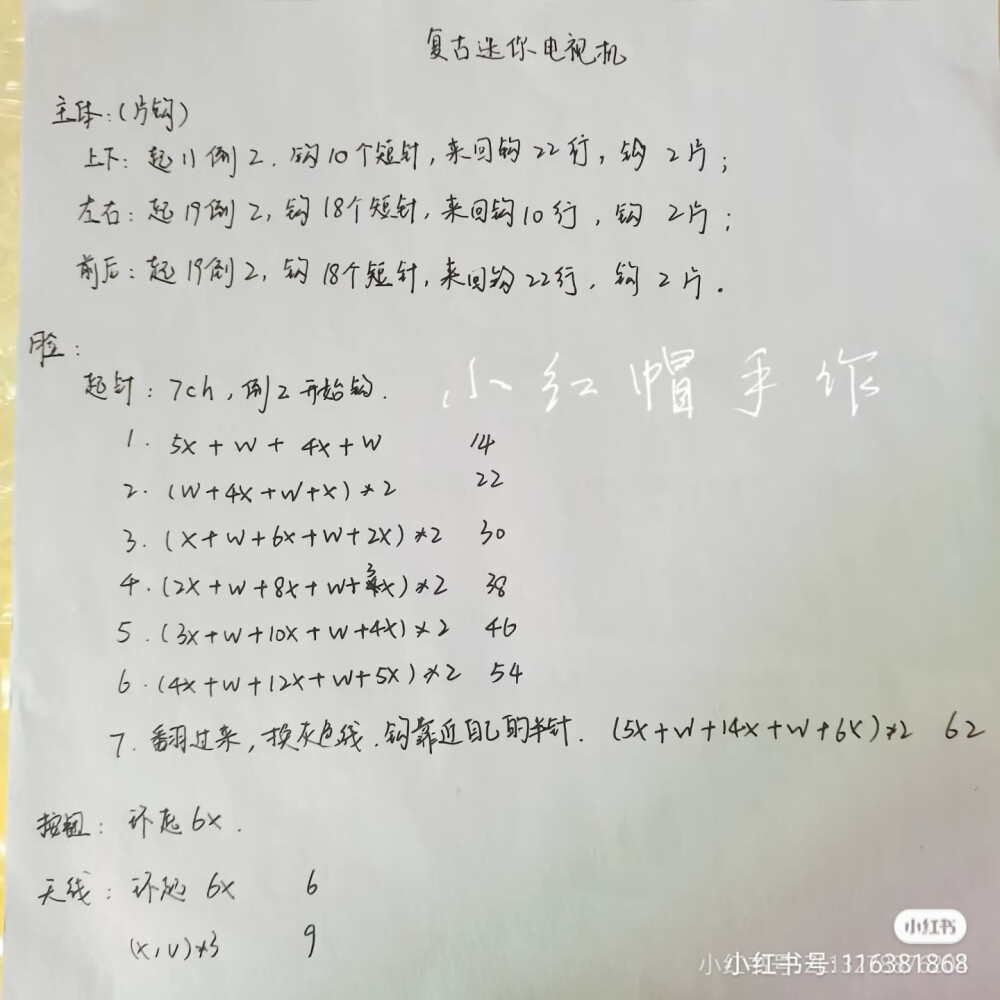 复古迷你电视机
主体:(片钩)
上下: 起11倒2. 钩10个短针,来回钩22行,钩2片;
左右: 起19倒2, 钩18个短针,来回钩10行,钩2片;
前后: 起19倒2, 钩18个短针,来回钩22行,钩2片.
脸:
起针: 7ch, 倒2开始钩.
小红帽手作
1. 5x+w+4x+w 14
2. (w+4x+w+x)*2 22
3. (x+w+6x+w+2x)*2 30
4. (2x+w+8x+w+3x)*2 38
5. (3x+w+10x+w+4x)*2 46
6. (4x+w+12x+w+5x)*2 54
7. 翻过来,换灰色线.钩靠近自己的半针. (5x+w+14x+w+6x)*2 62
按钮: 环起6x.
天线: 环起6x 6
(x,v)*3 9
小红书
小红书号:116381868